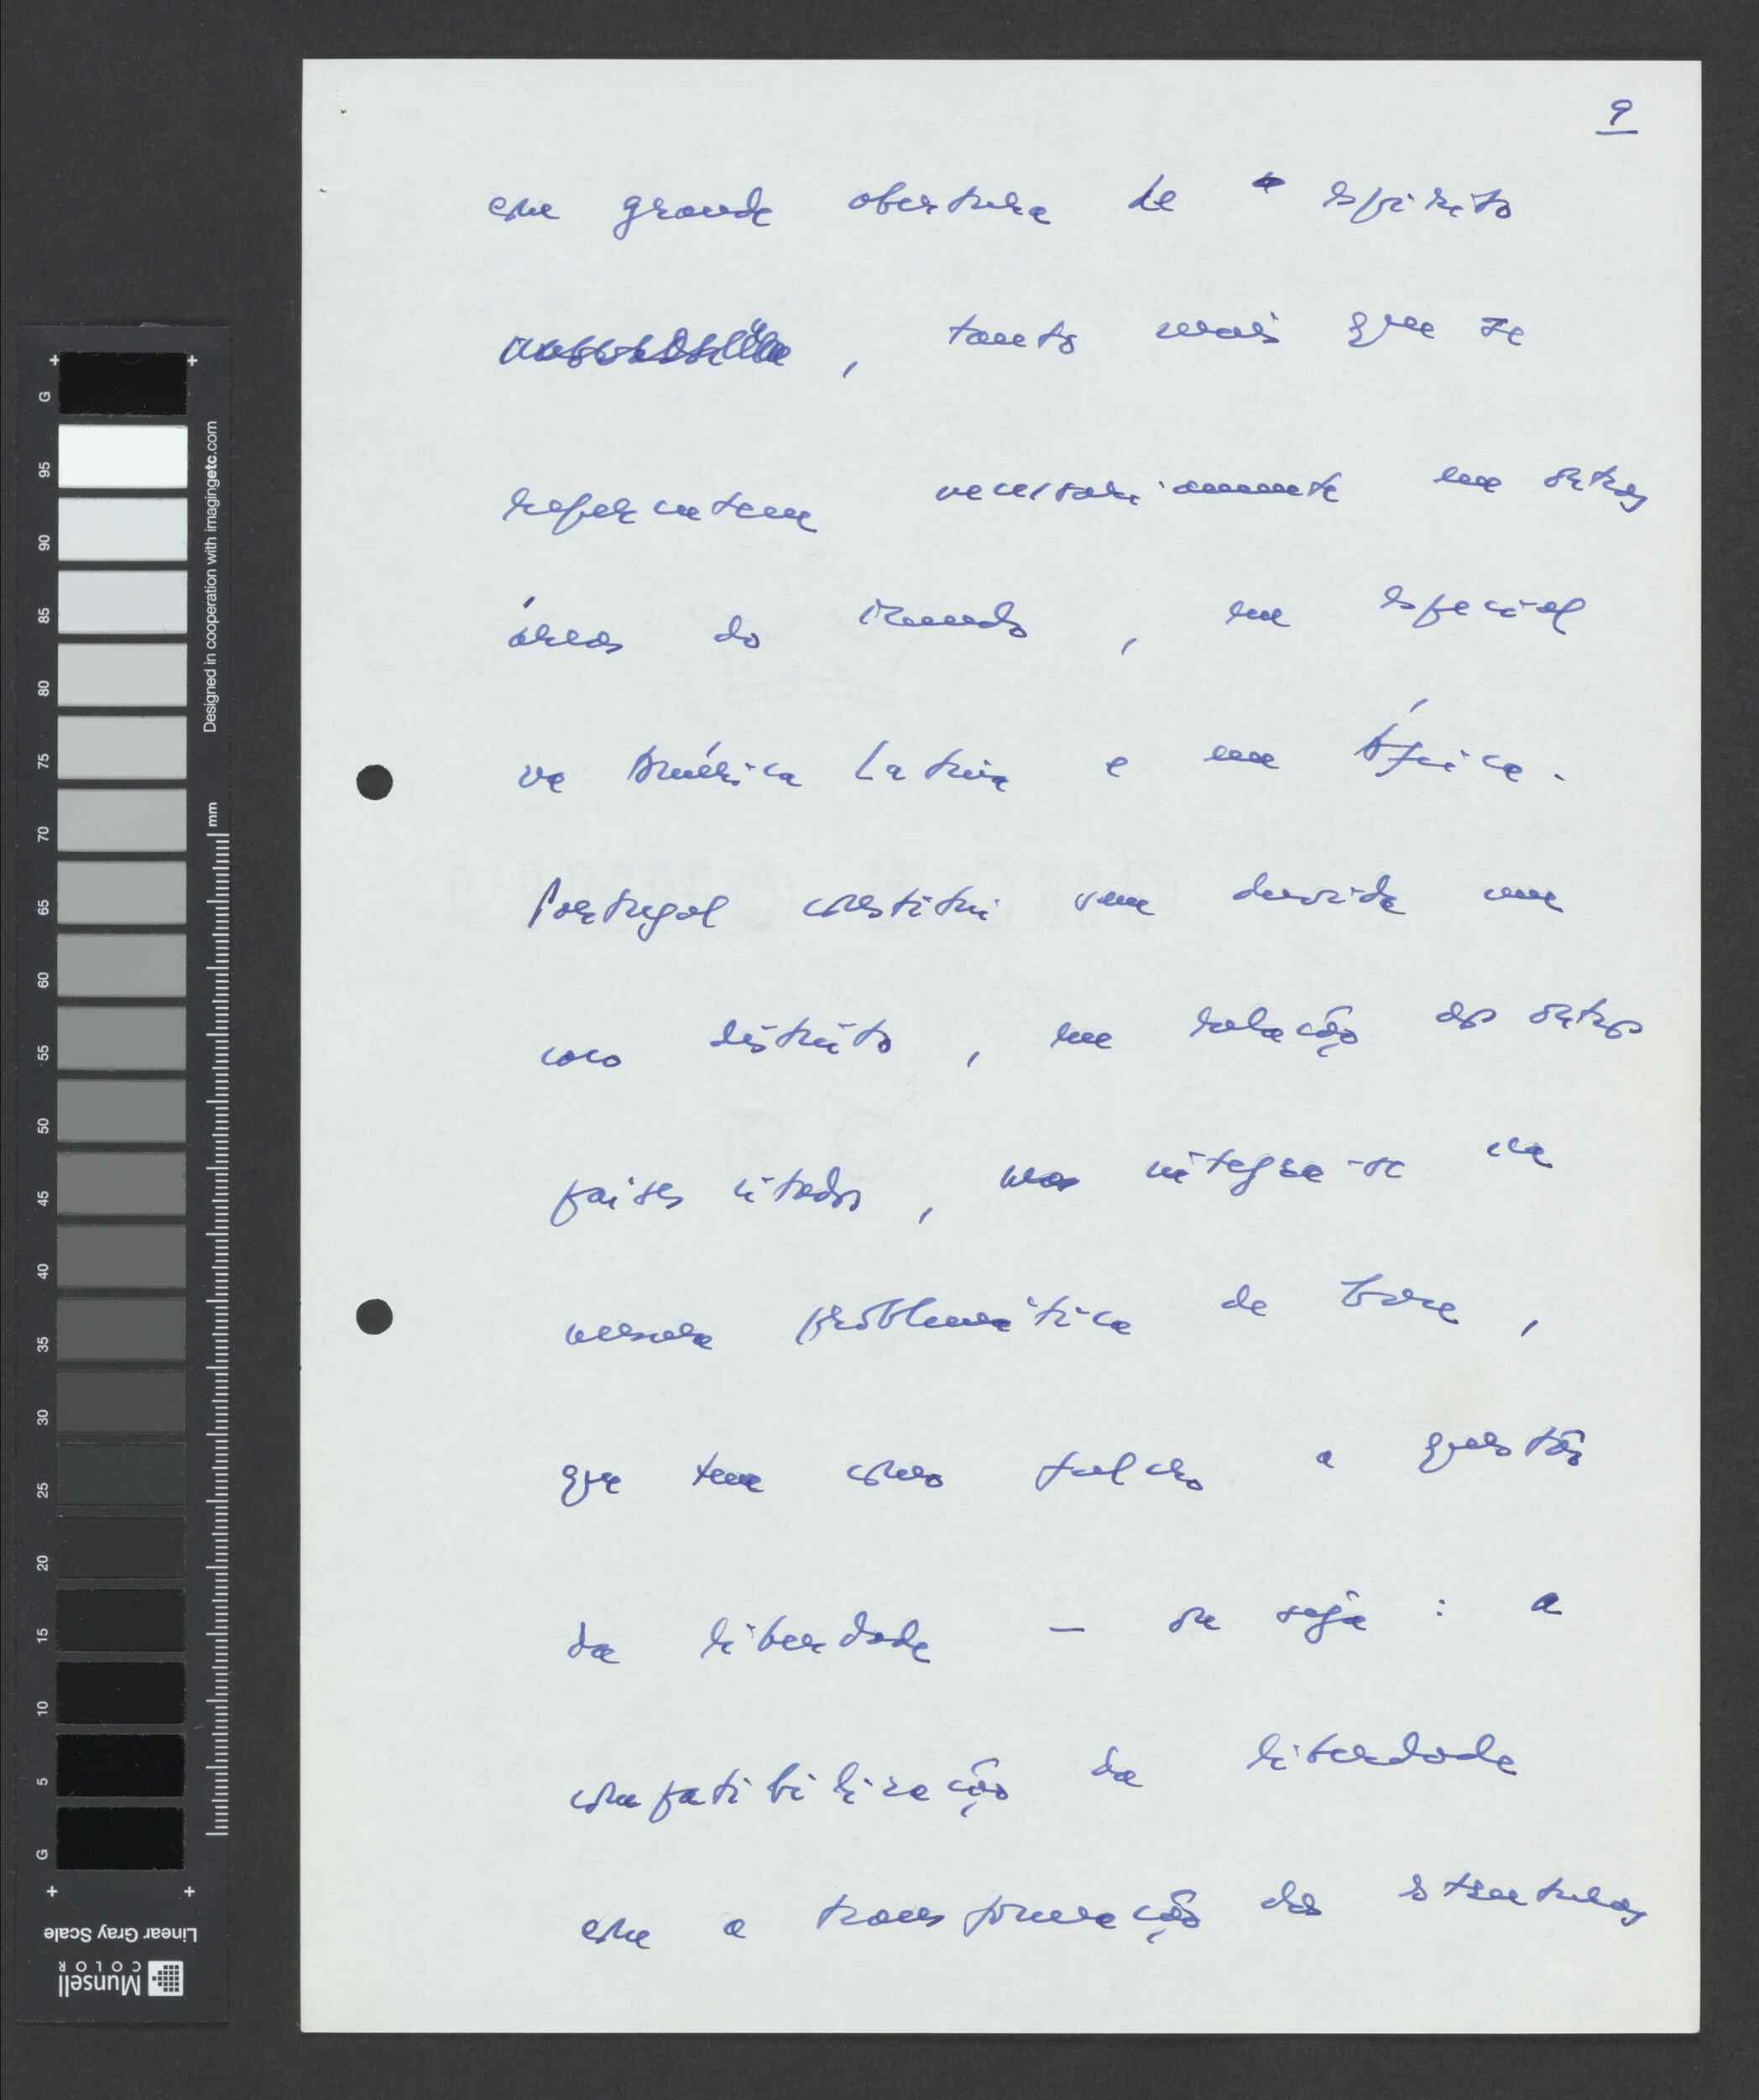 9
com grande abertura de espírito
, tanto mais que se
repercutem necessariamente em outras
áreas do mundo, em especial
na América Latina e em África.
Portugal constitui sem duvida um
caso distinto, em relação aos outros
países citados, mas integra-se na
mesma problemática de base,
que tem como fulcro a questão
da liberdade — ou seja: a
compatibilização da liberdade
com a transformação das estruturas
G
95
90
85
80
75
70
65
60
55
50
45
40
35
30
25
20
15
10
5
G
Designed in cooperation with imagingetc.com
mm
Linear Gray Scale
Munsell
COLOR